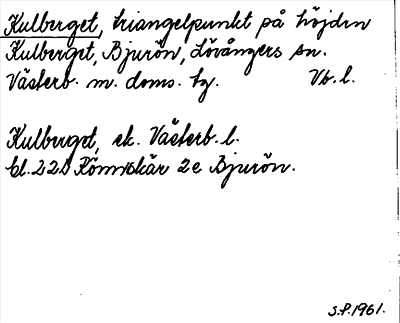 Kulberget, triangelpunkt på höjden
Kulberget, Bjurön, Lövångers sn.
Västerb. m. doms. tg. Vb. l.
Kulberget, ek. Västerb. l.
bl. 22D Rönnskär 2e Bjurön.
S.P. 1961.